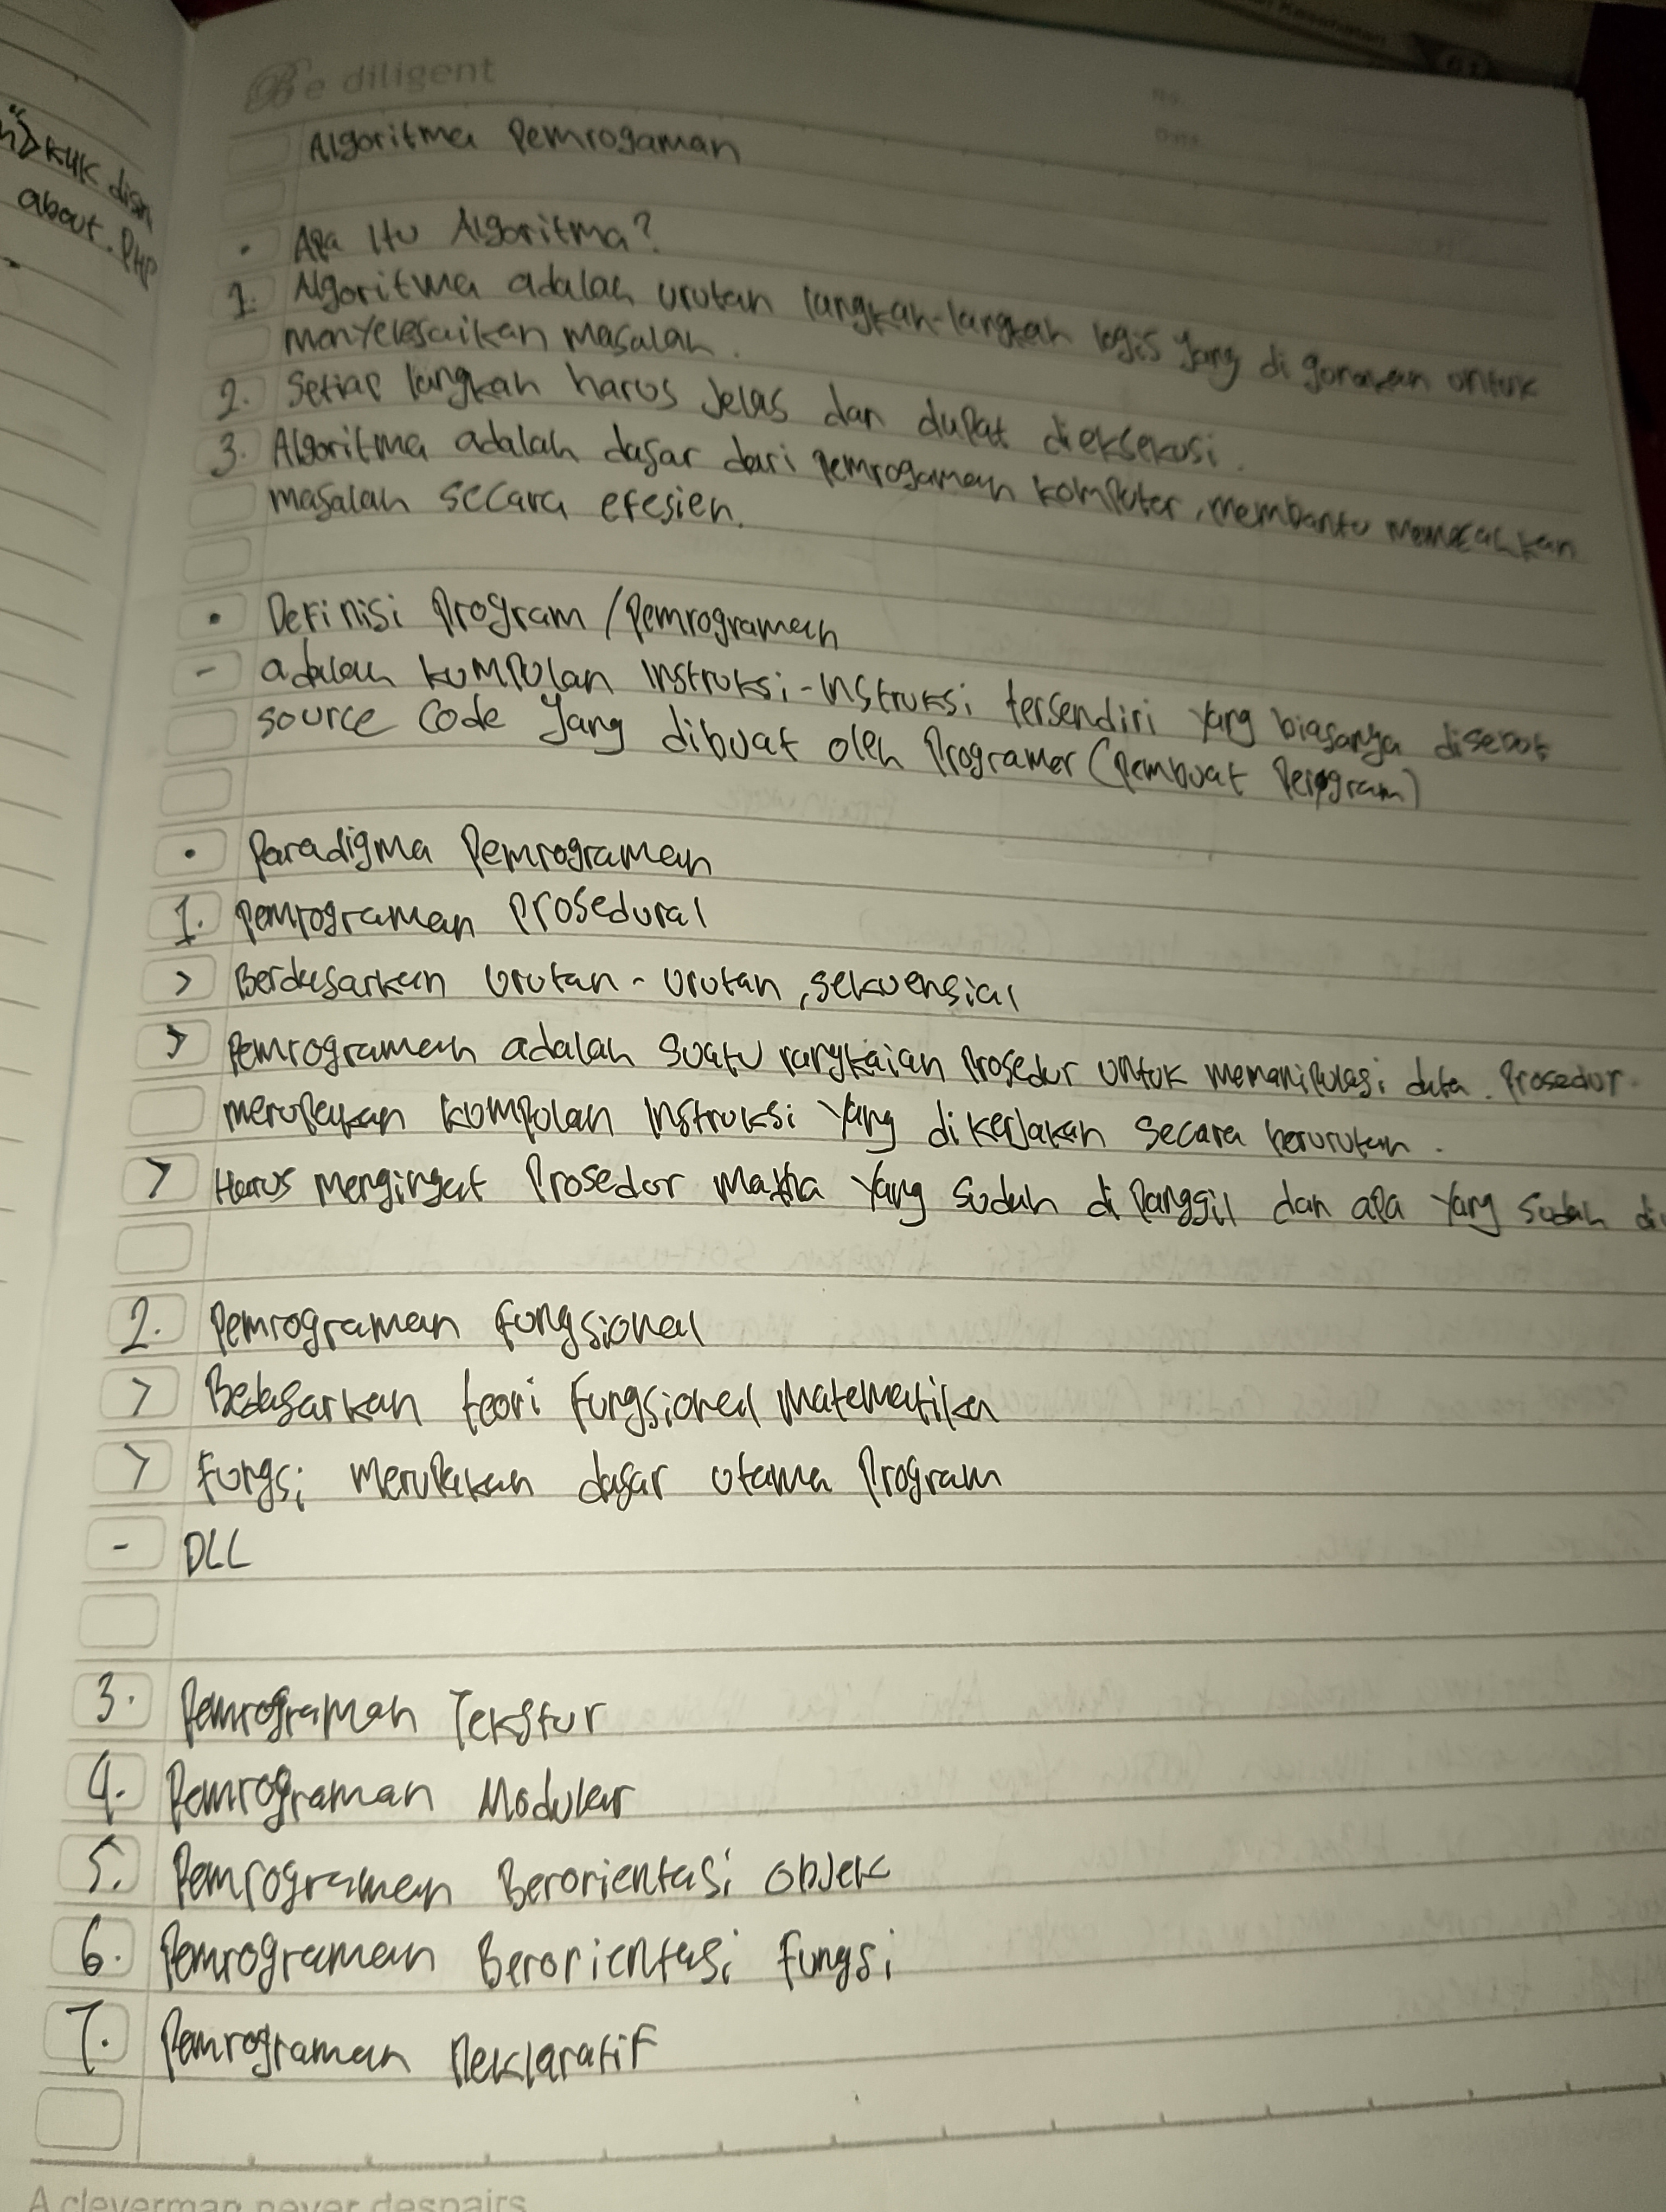 n"> KlIK disn
about. PHP
Be diligent
Algoritma Pemrogaman
• Apa Itu Algoritma?
1. Algoritma adalah urutan langkah-langkah logis yang di gunakan untuk
menyelesaikan masalah.
2. Setiap langkah harus Jelas dan dapat dieksekusi.
3. Algoritma adalah dasar dari pemrogaman komputer, membantu memecahkan
masalah secara efesien.
• Definisi Program / Pemrograman
- adalah kumpulan Instruksi-Instruksi tersendiri yang biasanya disebut
source Code yang dibuat oleh Programer (pembuat Perogram)
• Paradigma Pemrograman
1. Pemrograman Prosedural
> Berdasarkan Urutan-urutan, sekuensial
> Pemrograman adalah suatu rangkaian Prosedur Untuk memanipulasi data. Prosedur
merupakan kumpulan Instruksi yang dikerjakan secara berurutan.
> Harus mengingat Prosedur Mana yang sudah di Panggil dan apa yang sudah di
2. Pemrograman Fungsional
> Bedasarkan teori Fungsional Matematika
> Fungsi merupakan dasar utama Program
- DLL
3. Pemrograman Tekstur
4. Pemrograman Modular
5. Pemrograman Berorientasi Objek
6. Pemrograman Berorientasi Fungsi
7. Pemrograman Deklaratif
A cleverman never despairs